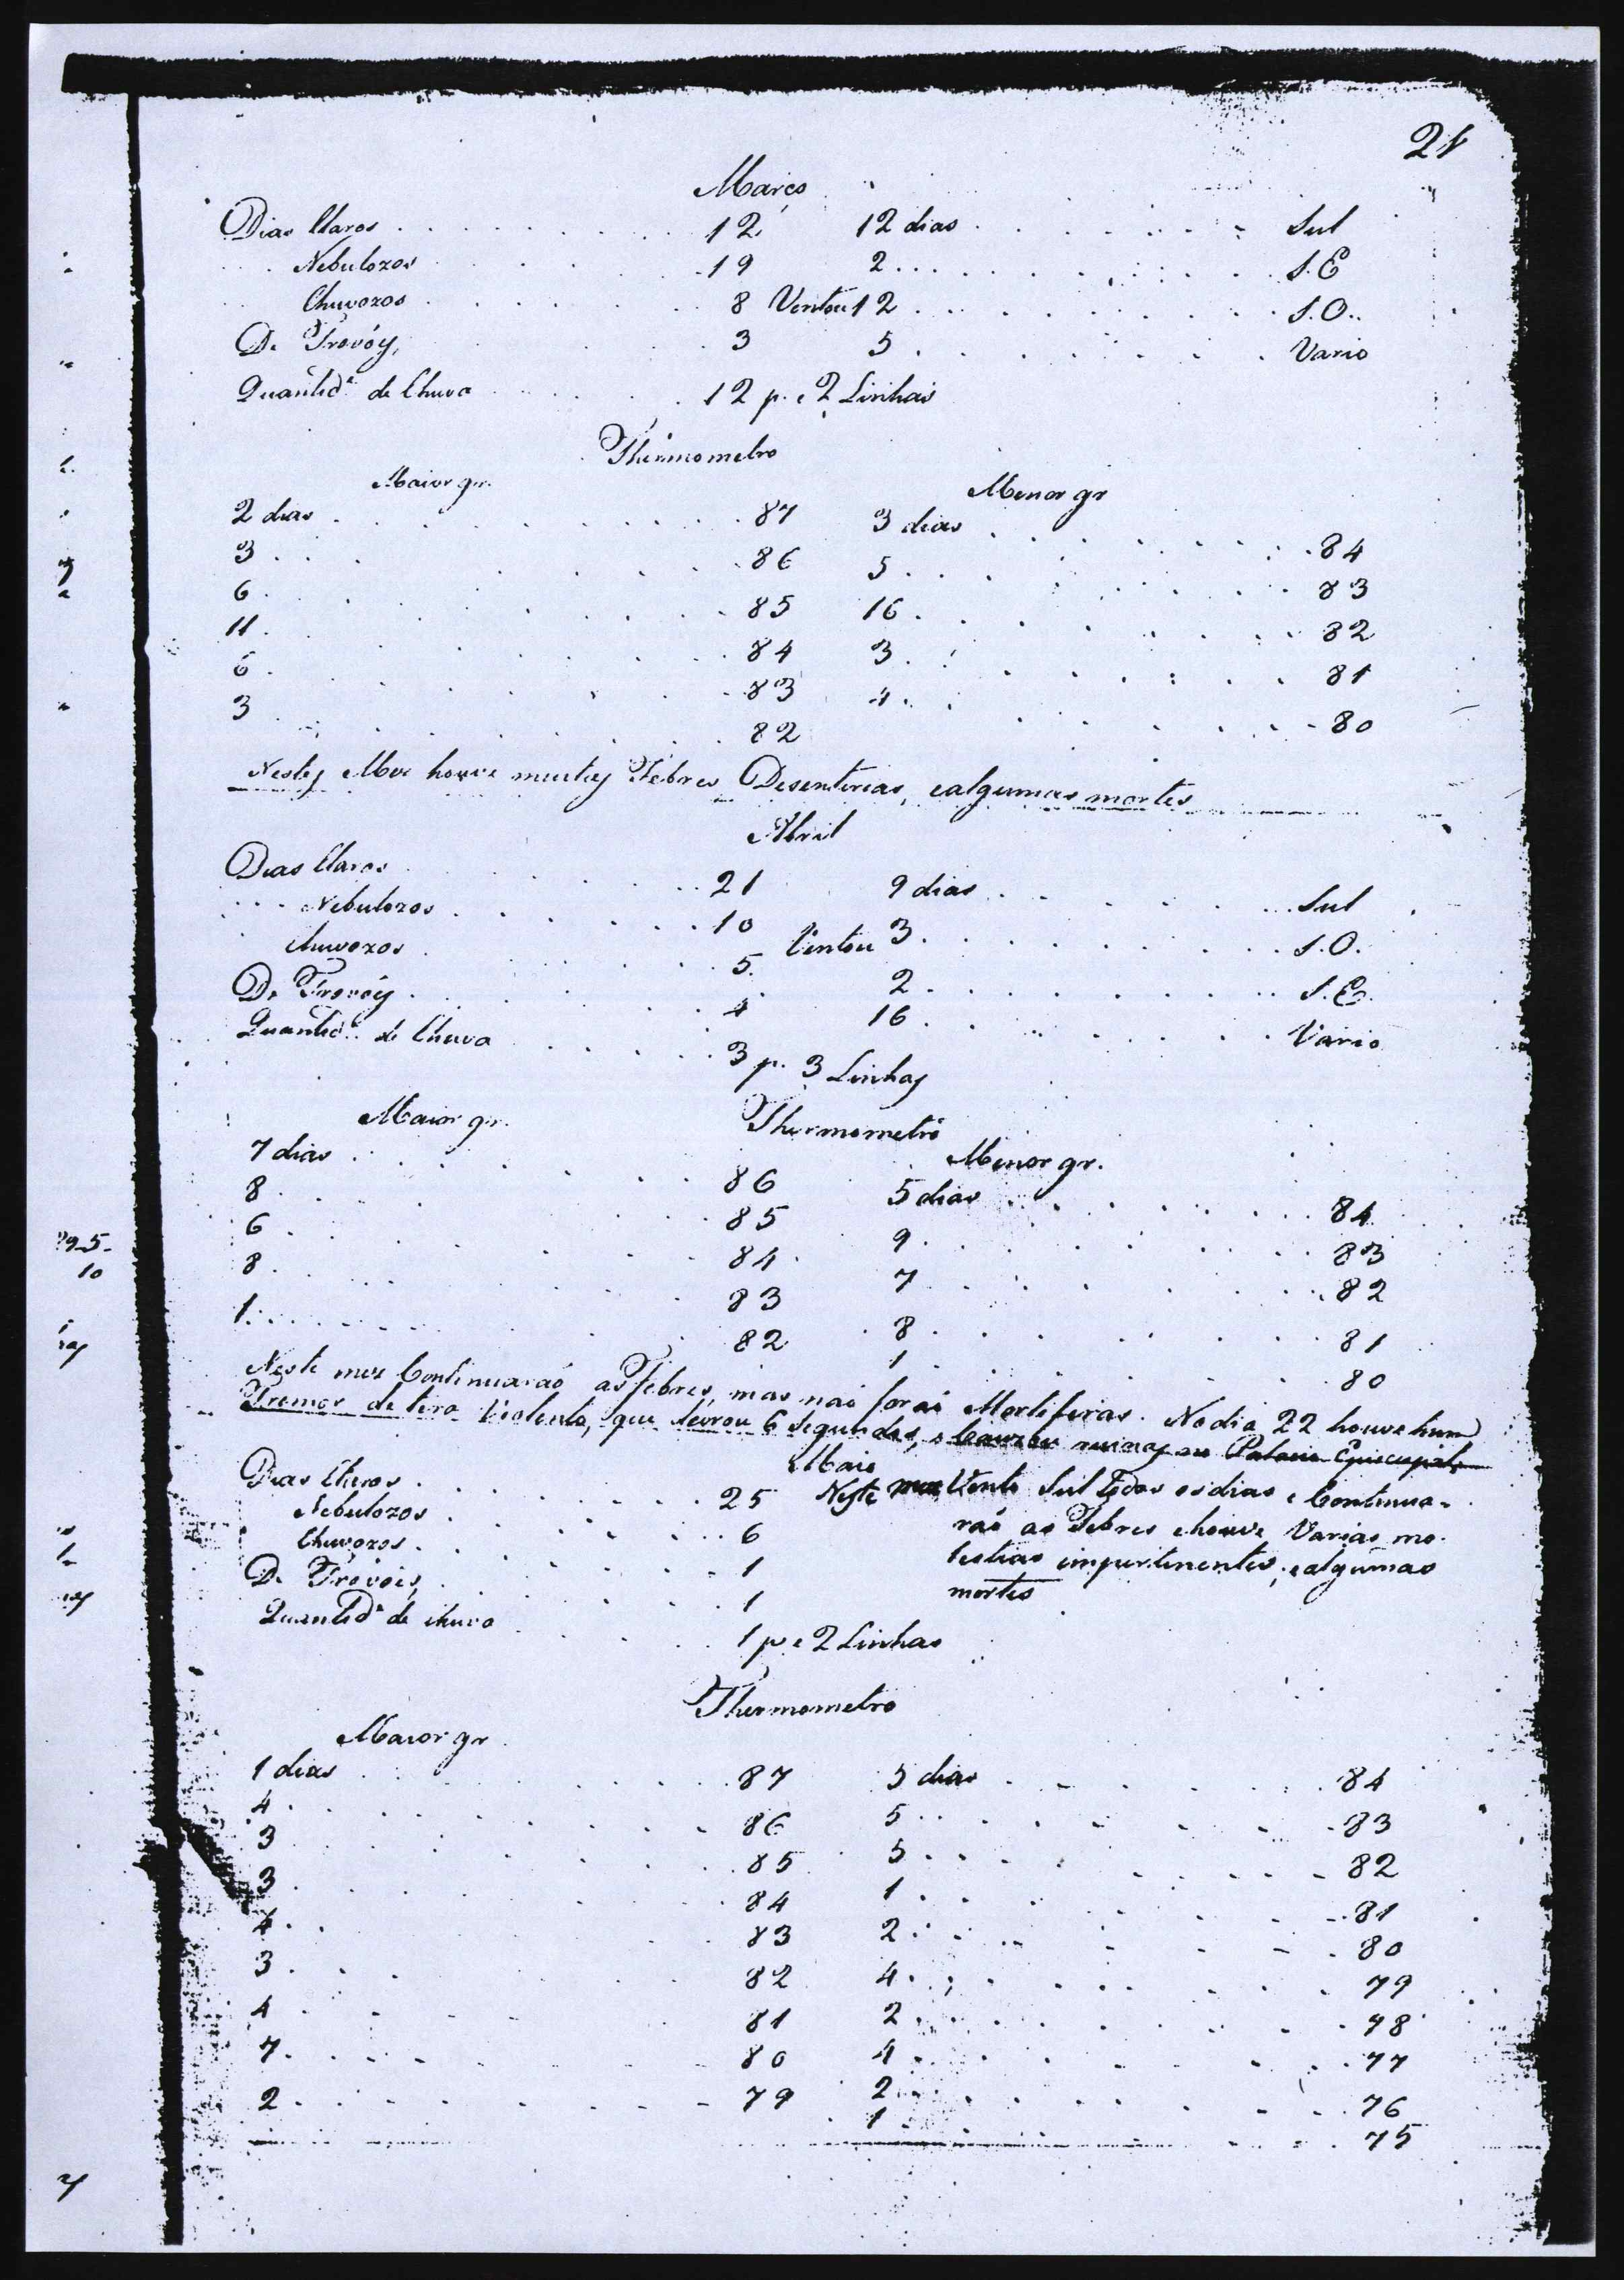 21
Março
Dias Claros 12 12 dias Sul
Nebulozos 19 2 S.E
Chuvozos 8 Ventou 12 S.O.
De Trovóẽs 3 5 Vario
Quantidᵉ de Chuva 12 p. e 2 Linhas
Thermometro
Maior gr. Menor gr
2 dias 87 3 dias 84
3 86 5 83
6 85 16 82
11 84 3 81
6 83 4 80
3 82
Neste Mez houve muitas Febres Desenterias, e algumas mortes
Abril
Dias Claros 21 9 dias Sul
Nebulozos 10 Ventou 3 S.O.
Chuvozos 5 2 S.E.
De Trovóẽs 4 16 Vario
Quantidᵉ de Chuva 3 p. 3 Linhas
Thermometro
Maior gr. Menor gr.
7 dias 86 5 dias 84
8 85 9 83
6 84 7 82
8 83 8 81
1 82 1 80
Neste mez Continuaraõ as Febres, mas naõ foraõ Mortiferas. No dia 22 houve hum
Tremor de terra Violento, que levou 6 Segundos, e Cauzou ruinas no Palacio Episcupal.
Maio
Dias Claros 25 Neste mez Vento Sul Todos os dias e Continua-
Nebulozos 6 raõ as Febres e houve Varias mo-
Chuvozos 1 lestias impertinentes, e algumas
De Trovões 1 mortes
Quantidᵉ de chuva 1 p e 2 Linhas
Thermometro
Maior gr
1 dias 87 5 dias 84
4 86 5 83
3 85 5 82
3 84 1 81
4 83 2 80
3 82 4 79
4 81 2 78
7 80 4 77
2 79 2 76
1 75